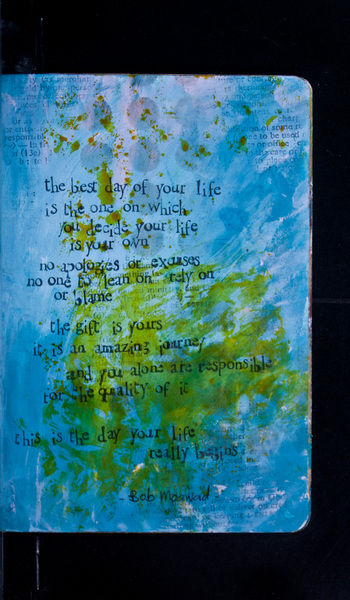 the best day of your life
is the one on which
you decide your life
is your own
no apologies or excuses
no one to lean on rely on
or blame
the gift is yours
it is an amazing journey
and you alone are responsible
for the quality of it
this is the day your life
really begins
- Bob Moawad -